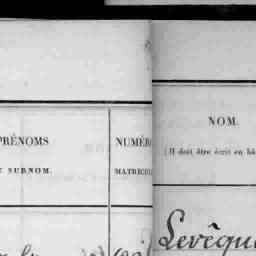 PRÉNOMS
ET SURNOM.
NUMÉRO
MATRICULE
NOM.
(Il doit être écrit en bâ
Levêque